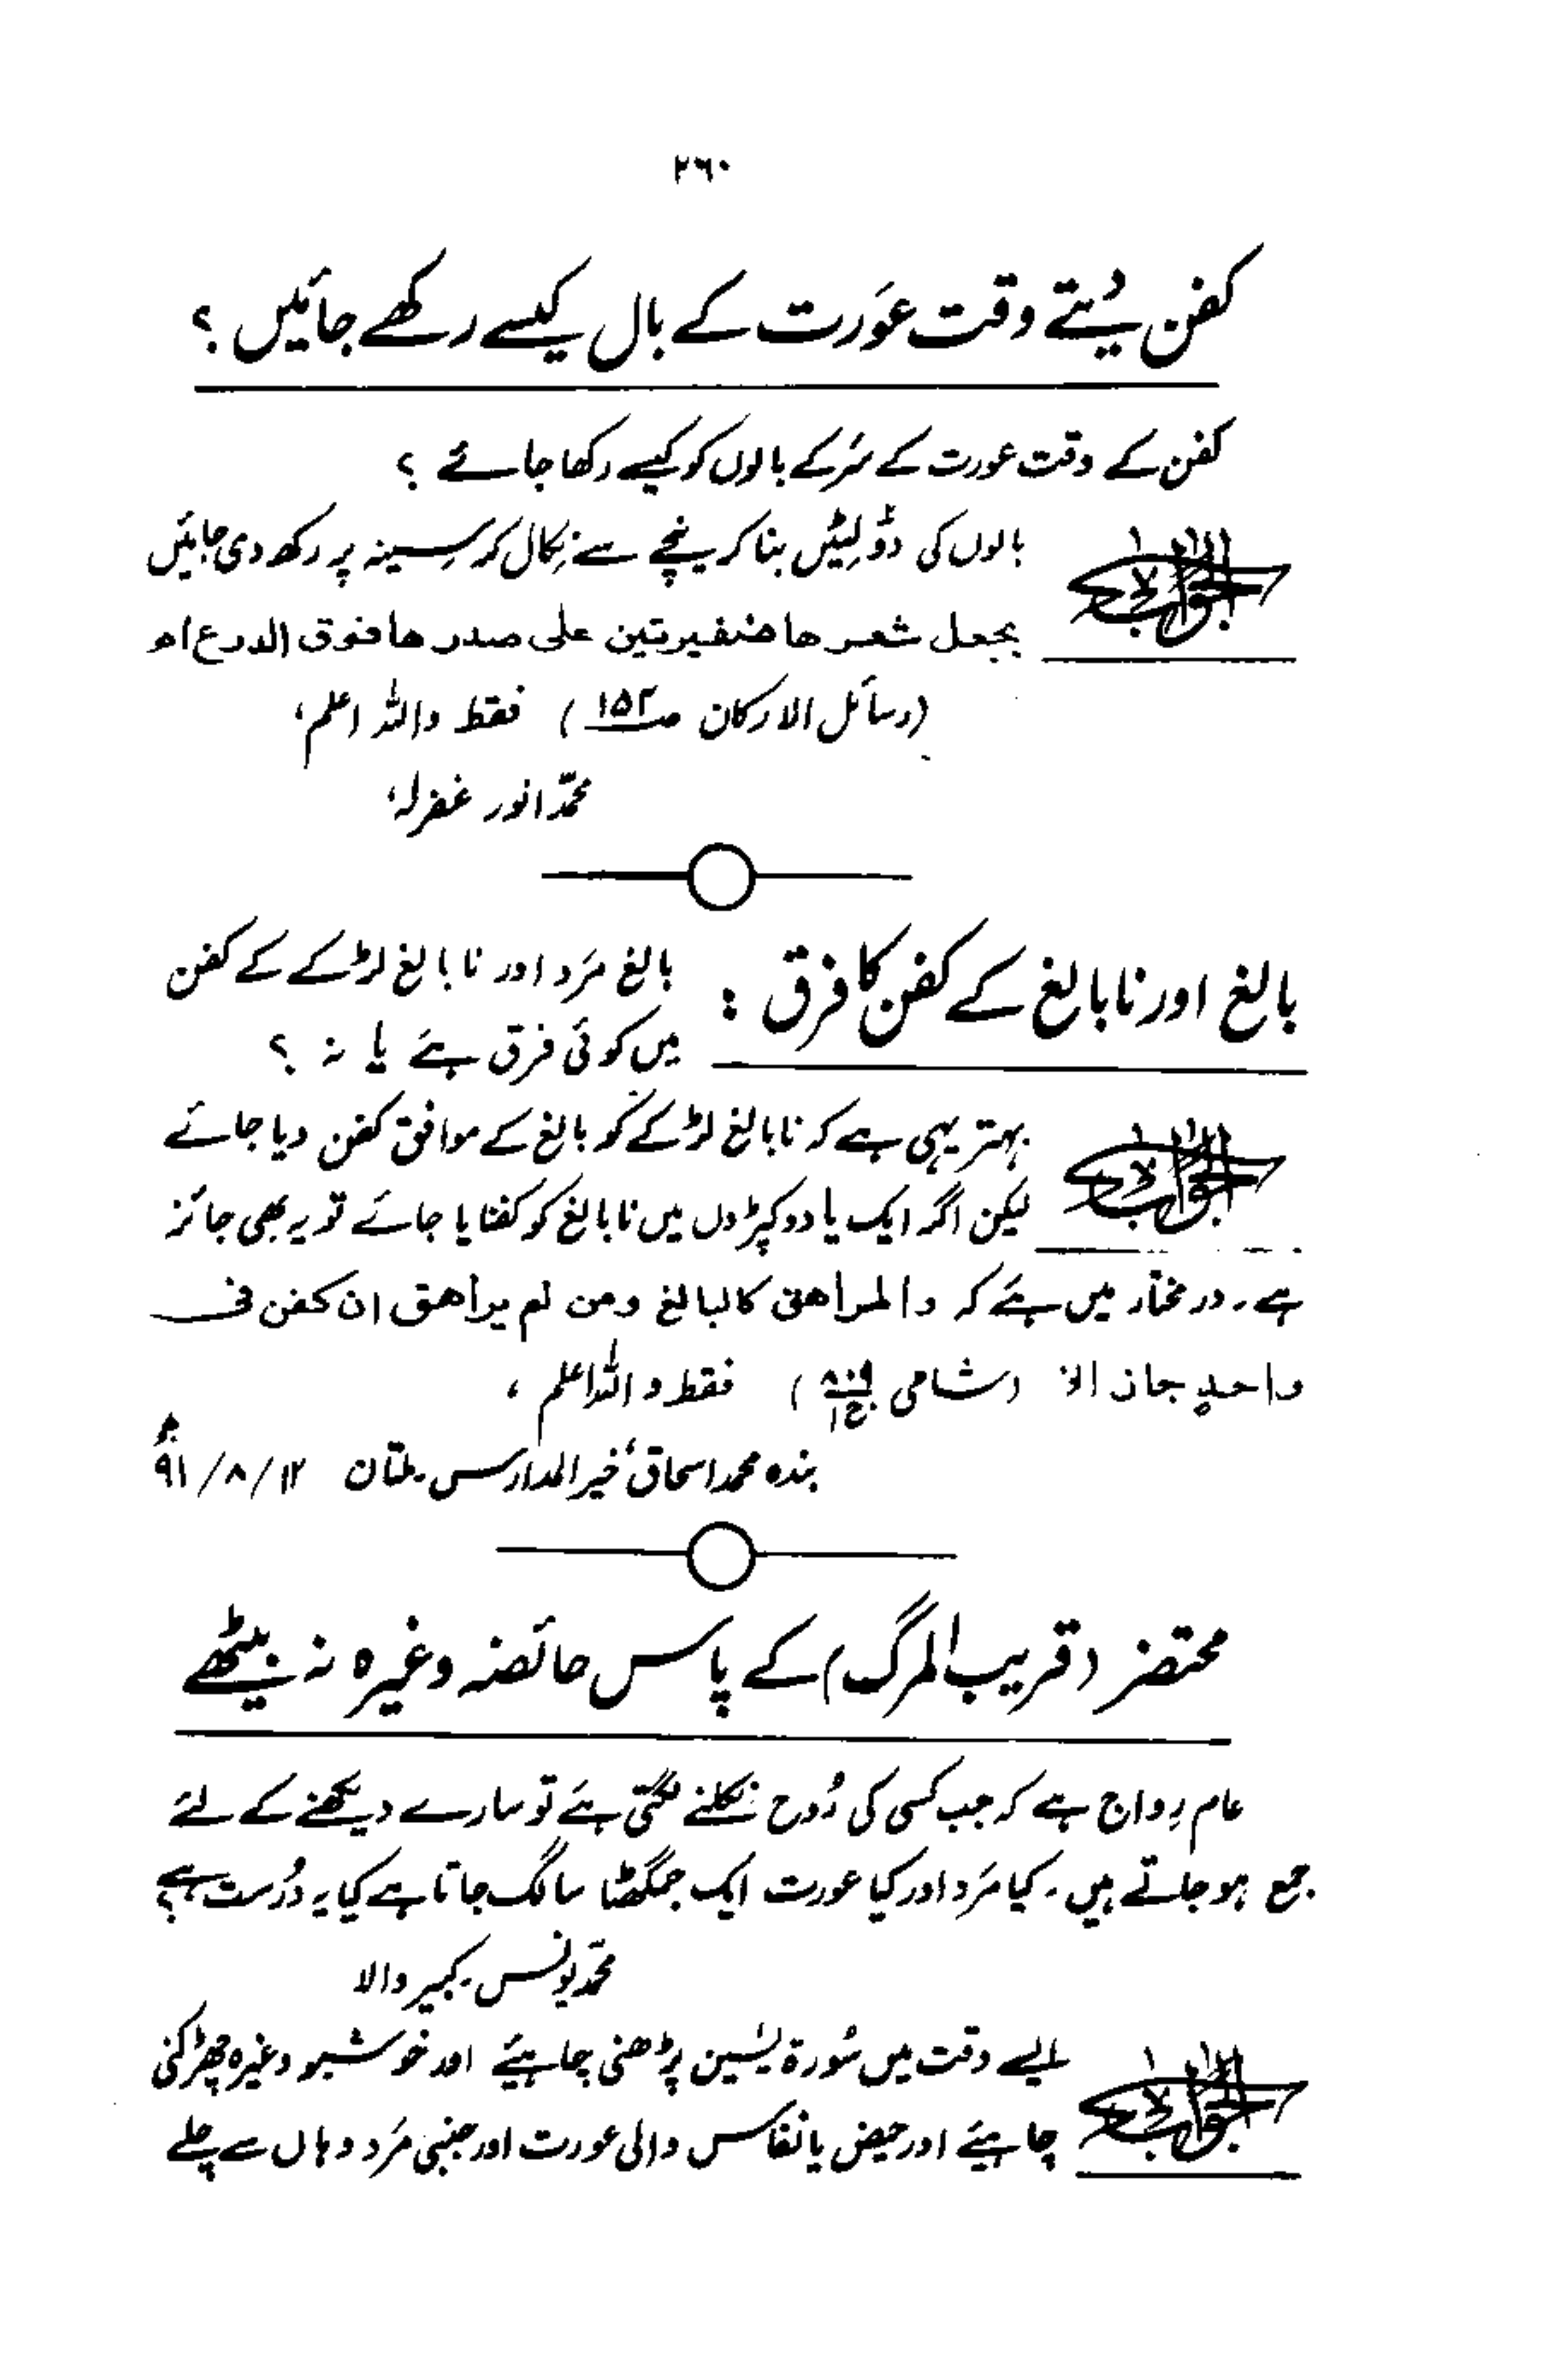 ۲٦۰
کفن دیتے وقت عورت کے بال کیسے رکھے جائیں ؟
کفن کے وقت عورت کے سَر کے بالوں کو کیسے رکھا جائے ؟
الجواب بالوں کی دو لِٹیں بنا کر نیچے سے نِکال کر سِینہ پر رکھ دی جائیں
یجعل شعرها ضفیرتین علی صدرها فوق الدرع اھ
(رسائل الارکان صـ۱۵۲) فقط واللہ اعلم،
محمّد انور غفرلہ،
بالغ اور نابالغ کے کفن کا فرق : بالغ مَرد اور نابالغ لڑکے کے کفن
میں کوئی فرق ہے یا نہ ؟
الجواب بہتر یہی ہے کہ نابالغ لڑکے کو بالغ کے موافق کفن دیا جائے
لیکن اگر ایک یا دو کپڑوں میں نابالغ کو کفنایا جائے تو یہ بھی جائز
ہے۔ در مختار میں ہے کہ والمراهق کالبالغ ومن لم یراهق ان کفن فی
واحدٍ جاز الخ (شامی ج۱) فقط واللہ اعلم ،
بندہ محمد اسحاق خیر المدارس ۔ ملتان ۱۲/۸/۹۱ھ
محتضر (قریب المرگ) کے پاس حائضہ وغیرہ نہ بیٹھے
عام رِواج ہے کہ جب کسی کی رُوح نکلنے لگتی ہے تو سارے دیکھنے کے لئے
جمع ہو جاتے ہیں ۔ کیا مَرد اور کیا عورت ایک جمگھٹا سا لگ جاتا ہے کیا یہ درُست ہے؟
محمّد یونس ۔ کبیر والا
الجواب ایسے وقت میں سُورۃ یٰسین پڑھنی چاہیئے اور خوشبو وغیرہ چھڑکنی
چاہیئے اور حیض یا نفاس والی عورت اور جنبی مَرد وہاں سے چلے